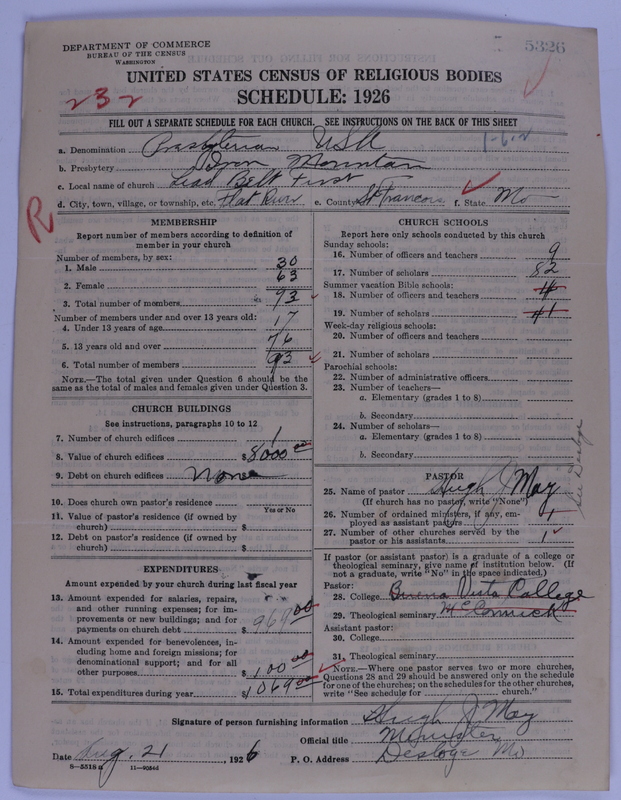 DEPARTMENT OF COMMERCE
BUREAU OF THE CENSUS
WASHINGTON
5326
UNITED STATES CENSUS OF RELIGIOUS BODIES
232
SCHEDULE: 1926
FILL OUT A SEPARATE SCHEDULE FOR EACH CHURCH. SEE INSTRUCTIONS ON THE BACK OF THIS SHEET
a. Denomination Presbyterian USA
b. Presbytery Iron Mountain
c. Local name of church Lead Belt First
d. City, town, village, or township, etc. Flat River e. County St Francois f. State Mo
R
MEMBERSHIP
Report number of members according to definition of
member in your church
Number of members, by sex:
1. Male 30
2. Female 63
3. Total number of members 93
Number of members under and over 13 years old:
4. Under 13 years of age 17
5. 13 years old and over 76
6. Total number of members 93
NOTE.—The total given under Question 6 should be the
same as the total of males and females given under Question 3.
CHURCH BUILDINGS
See instructions, paragraphs 10 to 12
7. Number of church edifices 1
8. Value of church edifices $8000.00
9. Debt on church edifices None
10. Does church own pastor's residence
Yes or No
11. Value of pastor's residence (if owned by
church) $
12. Debt on pastor's residence (if owned by
church) $
EXPENDITURES
Amount expended by your church during last fiscal year
13. Amount expended for salaries, repairs,
and other running expenses; for im-
provements or new buildings; and for
payments on church debt $ 969.00
14. Amount expended for benevolences, in-
cluding home and foreign missions; for
denominational support; and for all
other purposes $ 100.00
15. Total expenditures during year $ 1069.00
CHURCH SCHOOLS
Report here only schools conducted by this church
Sunday schools:
16. Number of officers and teachers 9
17. Number of scholars 82
Summer vacation Bible schools:
18. Number of officers and teachers 4
19. Number of scholars 41
Week-day religious schools:
20. Number of officers and teachers
21. Number of scholars
Parochial schools:
22. Number of administrative officers
23. Number of teachers—
a. Elementary (grades 1 to 8)
b. Secondary
24. Number of scholars—
a. Elementary (grades 1 to 8)
b. Secondary
See Desloge
PASTOR
25. Name of pastor Hugh J May
(If church has no pastor, write "None")
26. Number of ordained ministers, if any, em-
ployed as assistant pastors 1
27. Number of other churches served by the
pastor or his assistants 1
If pastor (or assistant pastor) is a graduate of a college or
theological seminary, give name of institution below. (If
not a graduate, write "No" in the space indicated.)
Pastor:
28. College Buena Vista College
29. Theological seminary McCormick
Assistant pastor:
30. College
31. Theological seminary
NOTE.—Where one pastor serves two or more churches,
Questions 28 and 29 should be answered only on the schedule
for one of the churches; on the schedules for the other churches,
write "See schedule for church."
Signature of person furnishing information Hugh J May
Official title Minister
Date Aug. 21, 1926 P. O. Address Desloge Mo
8—5518a 11—9054d